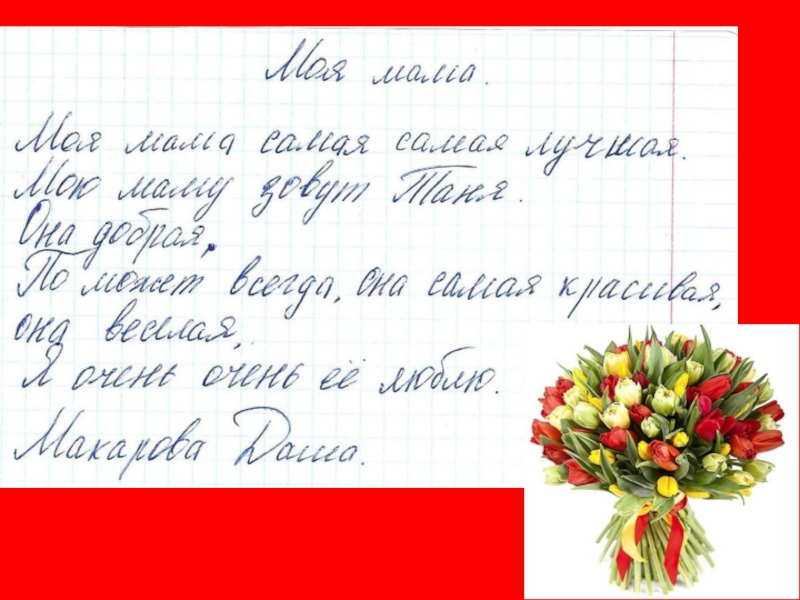 Моя мама.
Моя мама самая самая лучшая.
Мою маму зовут Таня.
Она добрая,
По может всегда, она самая красивая,
она веселая,
Я очень очень её люблю.
Макарова Даша.